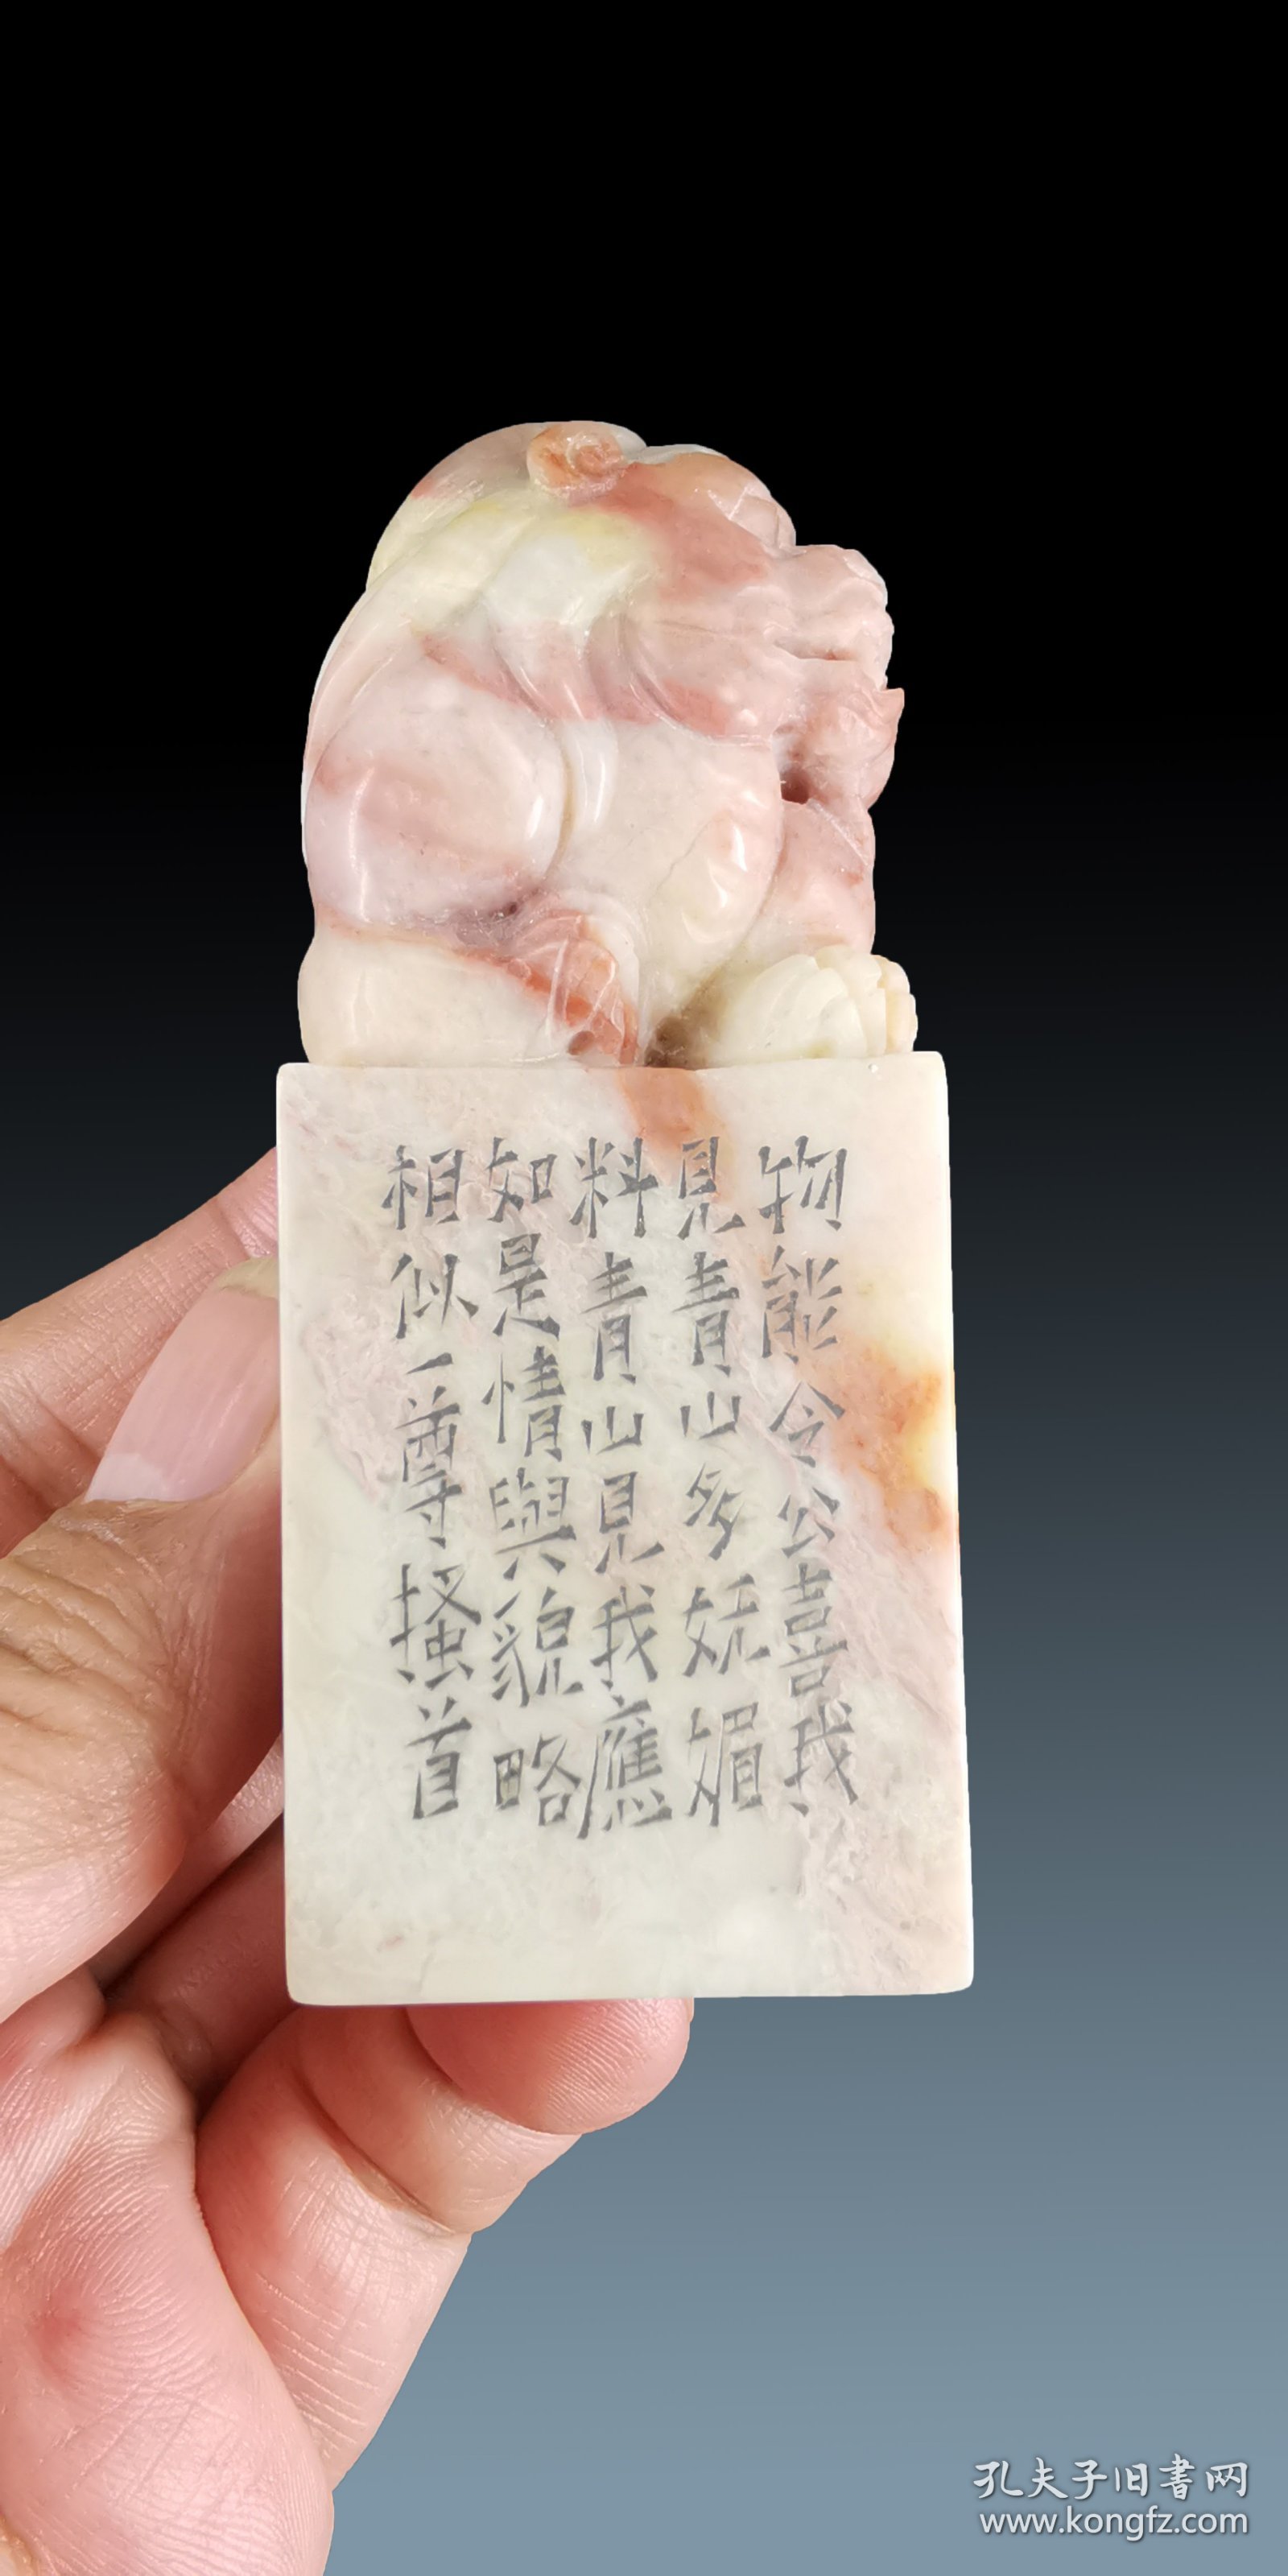 物能令公喜我
見青山多妩媚
料青山見我應
如是情與貌略
相似一尊搔首
孔夫子旧書网
www.kongfz.com